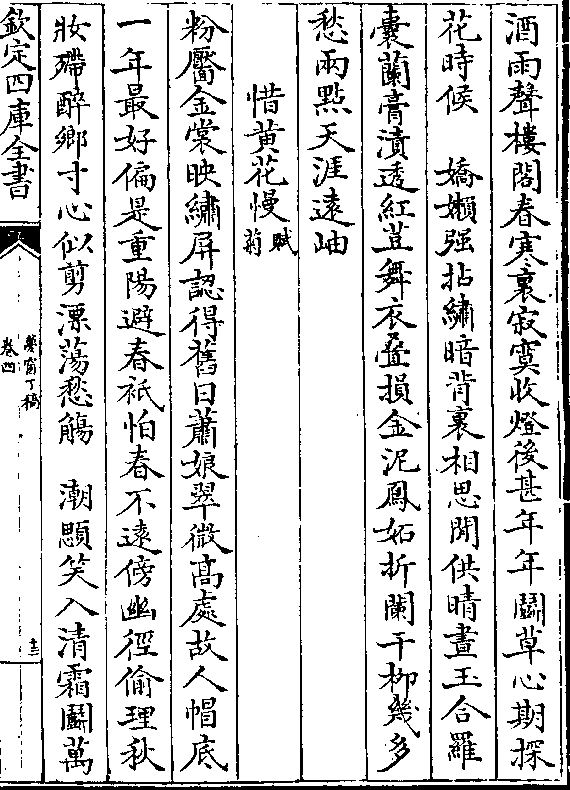 酒雨聲樓閣春寒裏寂寞收燈後甚年年鬭草心期探
花時候　嬌嬾强拈繡暗背裏相思閒供晴晝玉合羅
囊蘭膏漬透紅荳舞衣疊損金泥鳳妬折闌干栁幾多
愁兩點天涯逺岫
惜黄花慢賦菊
粉靨金裳映繡屏認得舊日蕭娘翠微髙處故人帽底
一年最好偏是重陽避春祇怕春不逺傍幽徑偷理秋
妝殢醉鄉寸心似剪漂蕩愁觴　潮顋笑入清霜鬭萬
欽定四庫全書
夢窗丁稿
卷四
十三